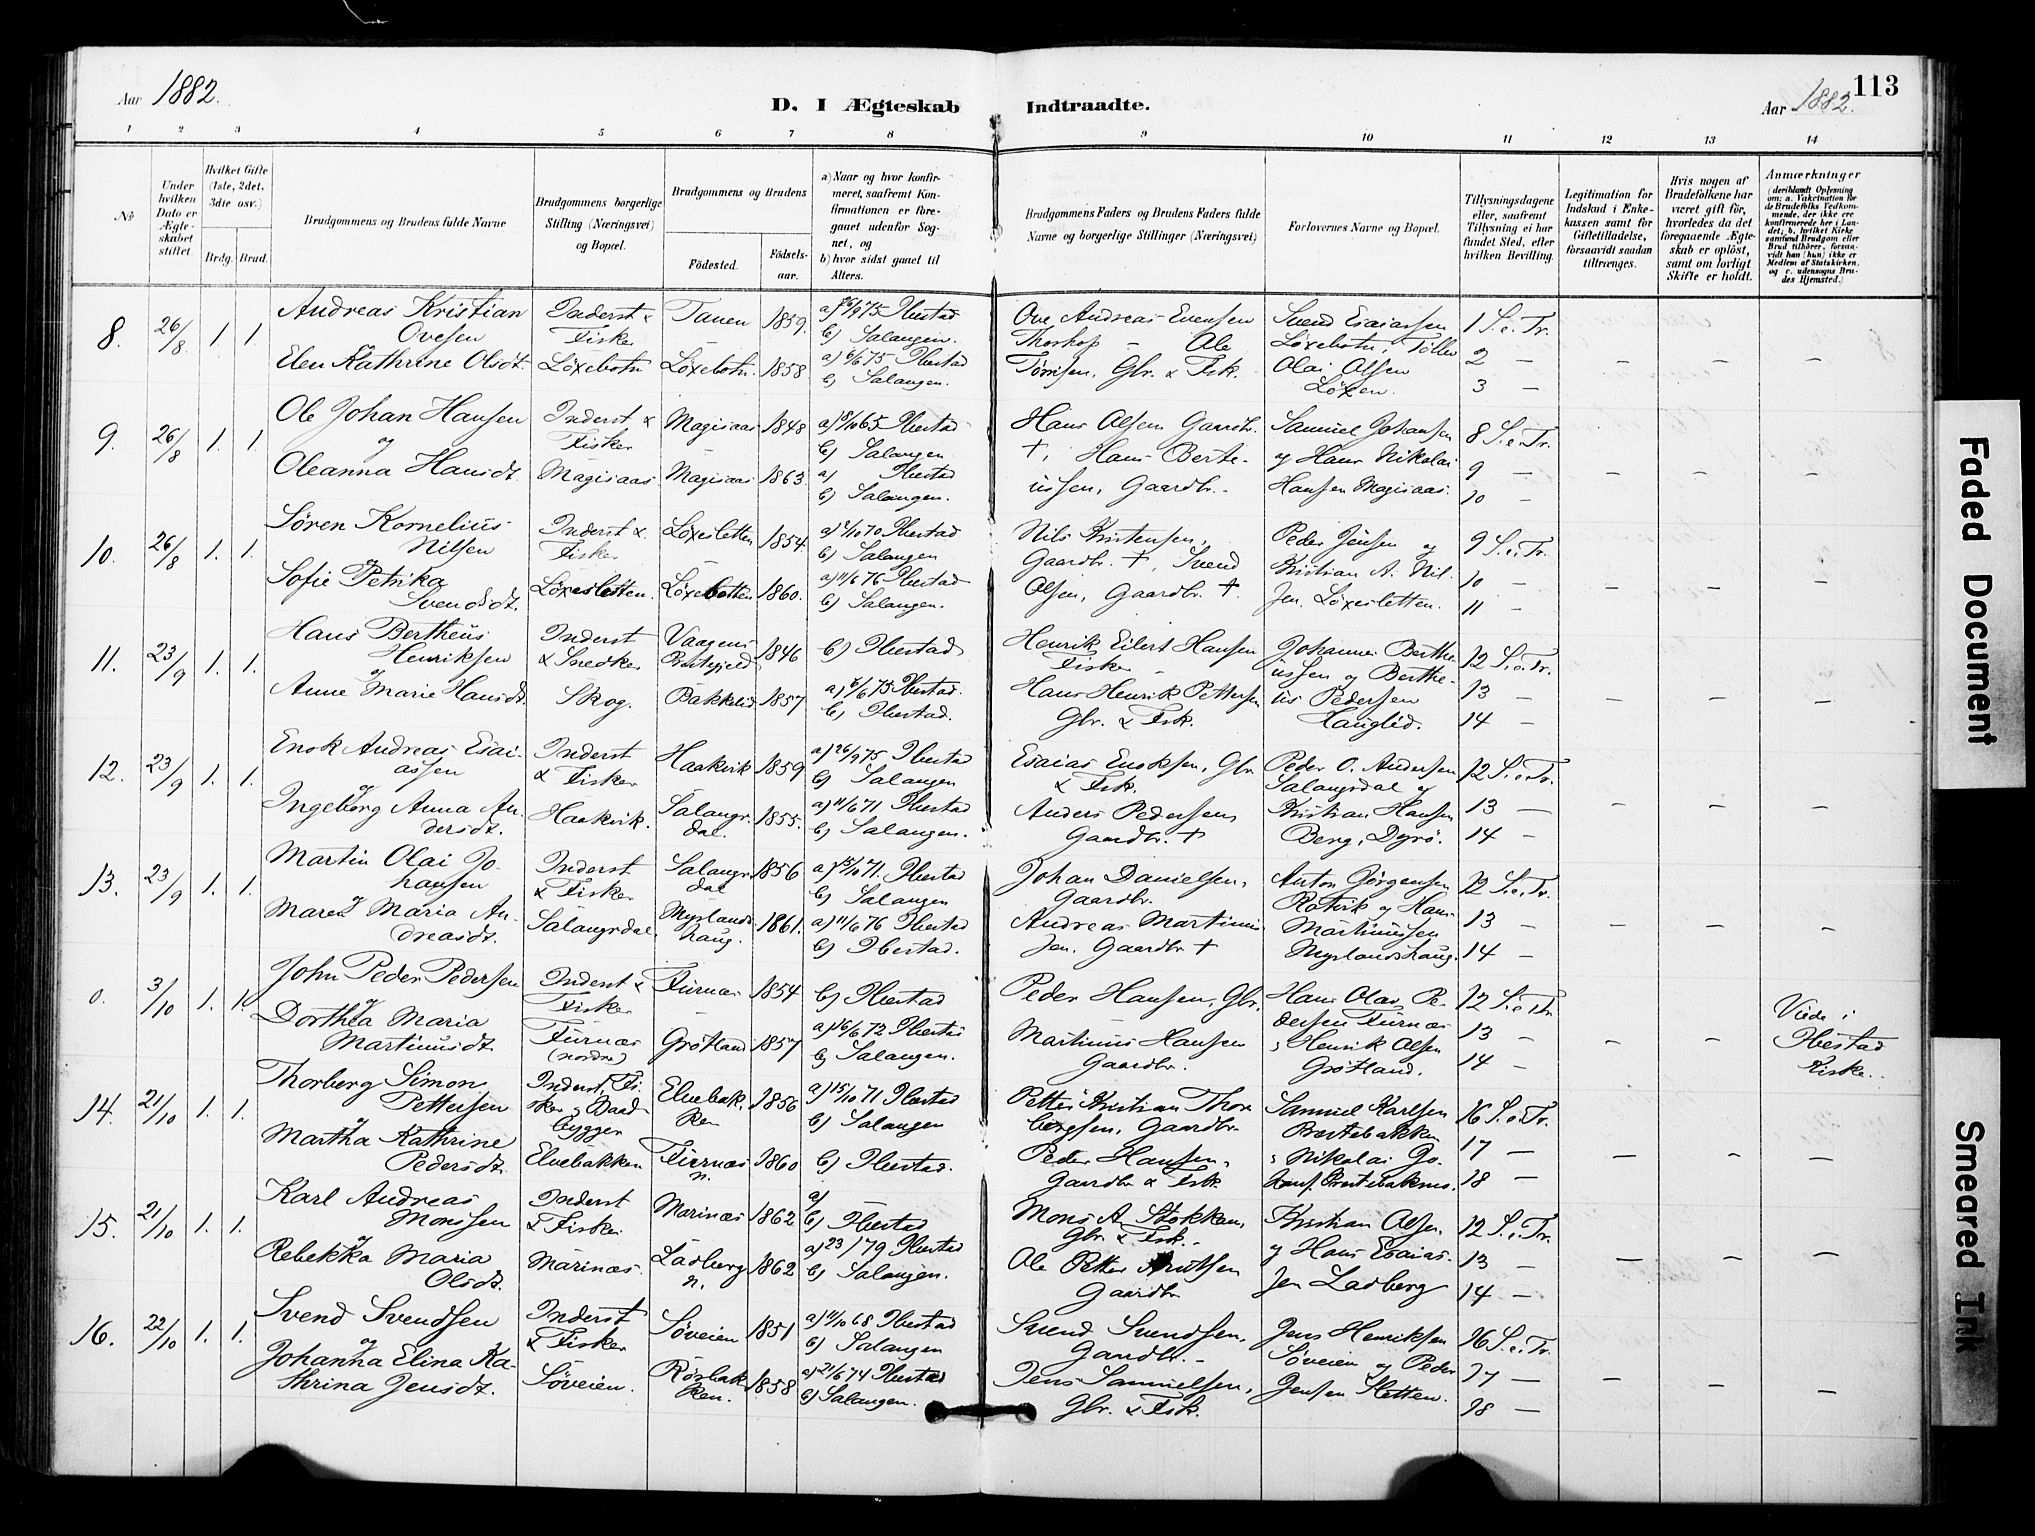 Aar 1882.
D. I Ægteskab Indtraadte.
Aar 1882.
113
1 2 3 4 5 6 7 8 9 10 11 12 13 14
No
Under hvilken Dato er Ægteskabet stiftet.
Hvilket Gifte (1ste, 2det, 3die osv.)
Brdg. Brud.
Brudgommens og Brudens fulde Navne
Brudgommens borgerlige Stilling (Næringsvei) og Bopæl.
Brudgommens og Brudens
Födested.
Födselsaar.
a) Naar og hvor konfirmeret, saafremt Konfirmationen er foregaaet udenfor Sognet, og
b) hvor sidst gaaet til Alters.
Brudgommens Faders og Brudens Faders fulde Navne og borgerlige Stillinger (Næringsvei)
Forlovernes Navne og Bopæl.
Tillysningsdagene eller, saafremt Tillysning ei har fundet Sted, efter hvilken Bevilling.
Legitimation for Indskud i Enkekassen samt for Giftetilladelse, forsaavidt saadan tiltrænges.
Hvis nogen af Brudefolkene har været gift før, hvorledes da det foregaaende Ægteskab er opløst, samt om lovligt Skifte er holdt.
Anmærkninger
(deriblandt Oplysning om: a. Vakcination for de Brudefolks Vedkommende, der ikke ere konfirmerede her i Landet; b. hvilket Kirkesamfund Brudgom eller Brud tilhører, forsaavidt han (hun) ikke er Medlem af Statskirken, og c. udensogns Brudes Hjemsted.)
8. 26/8 1. 1. Andreas Kristian Ovesen Inderst & Fisker Tanen 1859. a) 26/9 75 Ibestad b) Salangen. Ove Andreas Evensen Svend Esaiassen 1 S. e. Tr.
Elen Kathrine Olsdt. Löxebotn Löxebotn. 1858 a) 6/6 75 Ibestad b) Salangen. Ole Tørrisen, Gbr. & Fsk. Löxebotn, Olai Olsen Löxen. 2 — 3 —
9. 26/8 1. 1. Ole Johan Hansen og Inderst & Fisker Magisaas 1848 a) 8/10 65 Ibestad b) Salangen Hans Olsen Gaardbr. †, Samuel Johansen 8 S. e. Tr.
Oleanna Hansdt. Magisaas Magisaas 1863 a) Ibestad b) Salangen. Hans Berteussen, Gaardbr. og Hans Nikolai Hansen Magisaas. 9 — 10 —
10. 26/8 1. 1. Sören Kornelius Nilsen og Inderst & Fisker Löxesletten 1854 a) 70 Ibestad b) Salangen Nils Kristensen, Gaardbr. †, Peder Jensen og 9 S. e. Tr.
Sofie Petrika Svendsdt. Löxesletten. Löxebotten 1860. a) 11/6 76 Ibestad b) Salangen. Svend Olsen, Gaardbr. †. Kristian A. Nilsen, Löxesletten. 10 — 11 —
11. 23/9 1. 1. Hans Bertheus Henriksen og Inderst & Snedker Vaagens Præstegjeld 1846 b) Ibestad Henrik Eilert Hansen Fisker Johannes Bertheussen og 12 S. e. Tr.
Anne Marie Hansdt. Skog. Bakkelid 1857 a) 6/6 75 Ibestad. b) Ibestad. Hans Henrik Pettersen Gbr. & Fsk. Bertheus Pedersen Langlid. 13 — 14 —
12. 23/9 1. 1. Enok Andreas Esaiassen og Inderst & Fisker Haakvik 1859 a) 26/9 75 Ibestad b) Salangen Esaias Enoksen, Gbr & Fsk. Peder O. Andersen Salangsdal og 12 S. e. Tr.
Ingeborg Anna Andersdt. Haakvik. Salangsdal 1855. a) 11/6 71 Ibestad b) Salangen. Anders Pedersen, Gaardbr. † Kristian Hansen Berg, Dyrö. 13 — 14 —
13. 23/9 1. 1. Martin Olai Johansen og Inderst & Fisker Salangsdal 1856 a) 15/10 71. Ibestad b) Salangen Johan Danielsen, Gaardbr. Anton Jörgensen Rotvik og 12 S. e. Tr.
Maren Maria Andreasdt. Salangsdal Myrlandshaug. 1861. a) 11/6 76 Ibestad b) Ibestad. Andreas Martinussen, Gaardbr † Hans Martinussen Myrlandshaug. 13 — 14 —
0. 3/10 1. 1. John Peder Pedersen og Inderst & Fisker Furnæs 1854 b) Ibestad Peder Hansen, Gbr. Hans Olai Pedersen Furnæs 12 S. e. Tr.
Dorthea Maria Martinusdt. Furnæs (nordre) Grötland 1857 a) 16/6 72 Ibestad b) Salangen. Martinus Hansen Gaardbr. Henrik Olsen Grötland. 13 — 14 — Viede i Ibestad Kirke.
14. 21/10 1. 1. Thorberg Simon Pettersen og Inderst, Fisker, Baadbygger Elvebakken 1856 a) 15/10 71 Ibestad b) Salangen Petter Kristian Thorbergsen, Gaardbr. Samuel Karlsen Prestebakken 16 S. e. Tr.
Martha Kathrine Pedersdt. Elvebakken Furnæs n. 1860 b) Ibestad. Peder Hansen, Gaardbr & Fsk. Nikolai Johns. Prestebakmo. 17 — 18 —
15. 21/10 1. 1. Karl Andreas Monssen og Inderst & Fisker Marinæs 1862 a) — b) Ibestad Mons A. Stokken, Gbr. & Fsk. Kristian Olsen, 12 S. e. Tr.
Rebekka Maria Olsdt. Marinæs. Ladberg n. 1862 a) 23/ 79 Ibestad b) Salangen. Ole Petter Knutsen Gaardbr og Hans Esaiassen Ladberg 13 — 14 —
16. 22/10 1. 1. Svend Svendsen og Inderst & Fisker Söveien 1851 a) 11/10 68 Ibestad b) Salangen Svend Svendsen, Gaardbr. Jens Henriksen Söveien og 16 S. e. Tr.
Johanna Elina Kathrina Jensdt. Söveien. Rörbakken. 1858 a) 21/6 74 Ibestad b) Salangen. Jens Samuelsen, Gbr. & Fsk. Peder Jensen Sletten. 17 — 18 —
Faded Document
Smeared Ink